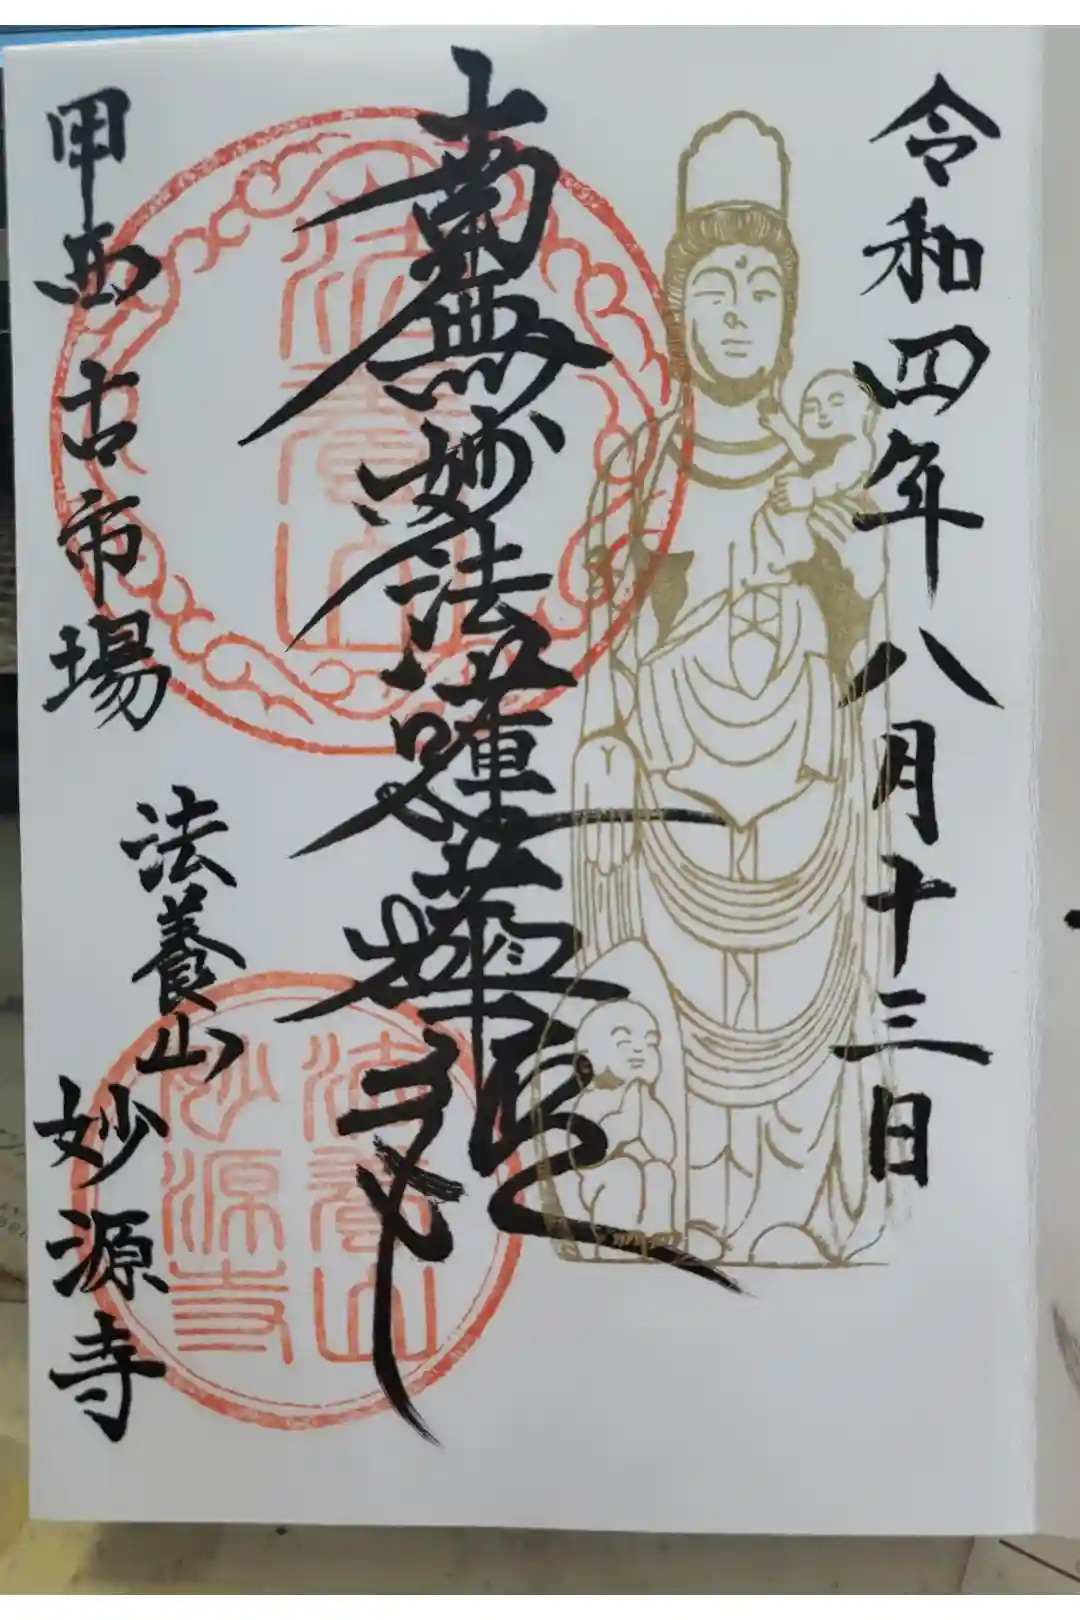 令和四年八月十三日
南無妙法蓮華経
甲西 古市場
法養山
妙源寺
法養山
法養山
妙源寺